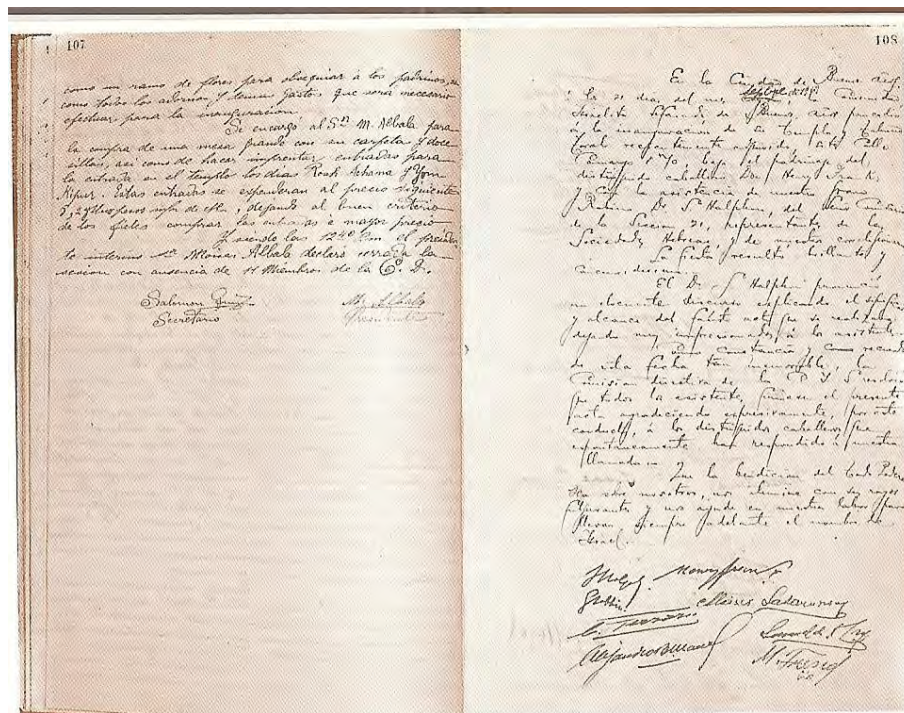 107
como un ramo de flores para obsequiar á los padrinos, asi
como todos los adornos y demas gastos que será necesario
efectuar para la inauguracion.
Se encargó al Sr. M. Albala para
la compra de una mesa grande con su carpeta y doce
sillas, asi como de hacer imprentar entradas para
la entrada en el templo los dias Rosh Ashana y Yom
Kipur. Estas entradas se expenderan al precio siguiente
5, 2 y pesos m/n de c/l, dejando al buen criterio
de los fieles comprar las entradas á mayor precio
Y siendo las 12 40 Pm. el presiden
te interino Sr. Moises Albala declaró cerrada la
sesion con ausencia de 11 Miembros de la C. D.
Salomon
Secretario
M. Albala
Presidente
108
En la Ciudad de Buenos Aires
á los 21 dias del mes Sepbre de la Comunidad
Israelita Sefaradi de Buenos Aires procedió
á la inauguracion de su Templo y
recientemente adquirido, sito calle
Camargo 870, bajo el padrinazgo del
distinguido caballero Don Henry Frank
y con la asistencia de nuestro gran
Rabino Dr. S. Halphon, del
de la Seccion 21, representantes de las
Sociedades Hebreas y de nuestros
La fiesta resultó brillante y
El Dr. S. Halphon pronunció
un elocuente discurso explicando el significado
y alcance del acto que se realizaba
dejando muy impresionados á los asistentes
Como constancia y como recuerdo
de esta fecha tan memorable, la
Comision directiva de la
que todos los asistentes, firmasen el presente
acta agradeciendo expresivamente, por este
conducto, á los distinguidos caballeros que
espontaneamente han respondido á nuestra
llamada
Que la bendicion del Todo Poderoso
sea sobre nosotros, nos ilumine con sus rayos
y nos ayude en nuestra labor para
llevar siempre adelante el nombre de
Israel.
Henry Frank
Moises
Alejandro